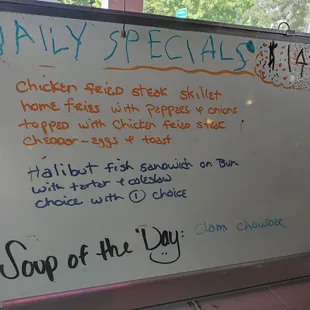 DAILY SPECIALS
$ 14
Chicken fried steak skillet
home fries with peppers & onions
topped with Chicken fried steak
cheddar-eggs & toast
Halibut fish sandwich on Bun
with tarter & coleslaw
choice with ① choice
Soup of the Day: Clam Chowder